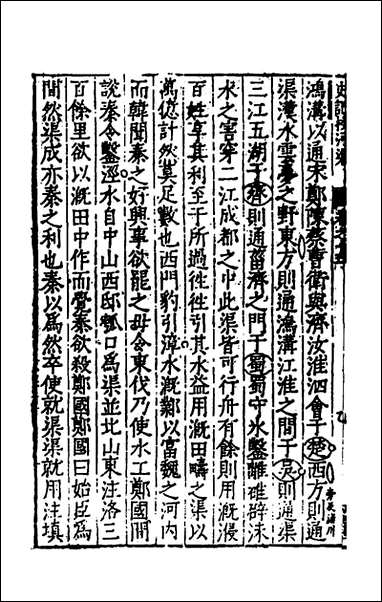 鴻溝以通宋鄭陳蔡曹衛與濟汝淮泗會于楚西方則通
渠漢水雲夢之野東方則通鴻溝江淮之間于吳則通渠
三江五湖于齊則通菑濟之門于蜀蜀守氷鑿離碓辟沫
水之害穿二江成都之中此渠皆可行舟有餘則用溉浸
百姓享其利至于所過徃徃引其水益用溉田疇之渠以
萬億計然莫足數也西門豹引漳水溉鄴以富魏之河内
而韓聞秦之好興事欲罷之毋令東伐乃使水工鄭國間
説秦令鑿涇水自中山西邸瓠口爲渠並北山東注洛三
百餘里欲以溉田中作而覺秦欲殺鄭國鄭國曰始臣爲
間然渠成亦秦之利也秦以爲然卒使就渠渠就用注填